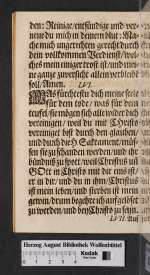 den: Reinige/entsündige und ver-
neue du mich in deinem blut: Ma-
che mich ungerechten gerecht durch
dein vollkommen Verdienst/wel-
ches mein einiger trost ist/und mei-
ne ganze zuversicht allein verbleibt
soll/Amen. LVI.
Was fürchtestu dich meine seele
für dem tode/was für dem
teufel/sie mögen sich alle wider dich
vereinigen/weil du mit ist/und
vereiniget bist durch den glauben/
und durch die H. Sacrament/müs-
sen sie zu schanden werden/und ihr
bündnüß zu spott/weil Christus
GOtt in Christo mit dir eins ist/
er in dir/und du in ihm/Christus
ist mein leben/und sterben ist mein
gewin/drum begehre ich aufgelöset
zu werden/und bey Christo zu seyn.
LVII. Auf
Herzog August Bibliothek Wolfenbüttel
Kodak